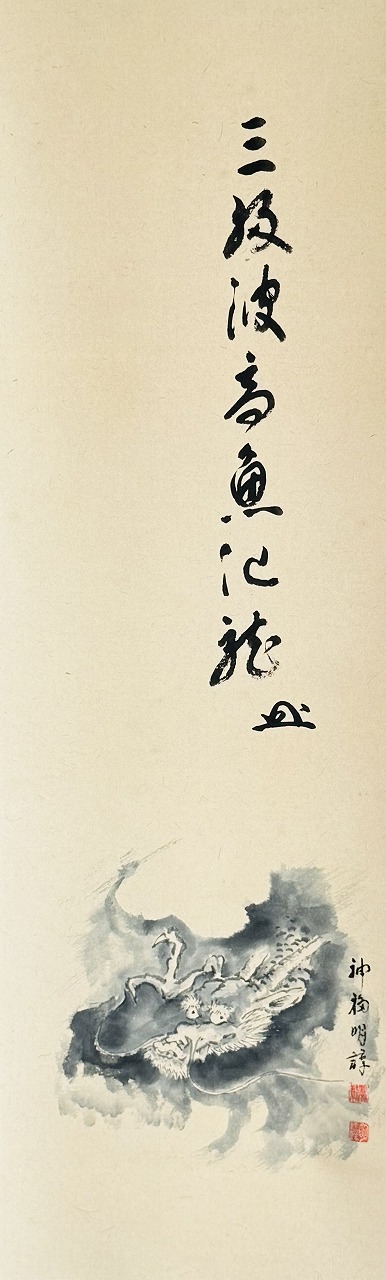 三級波高魚化龍
神明諄